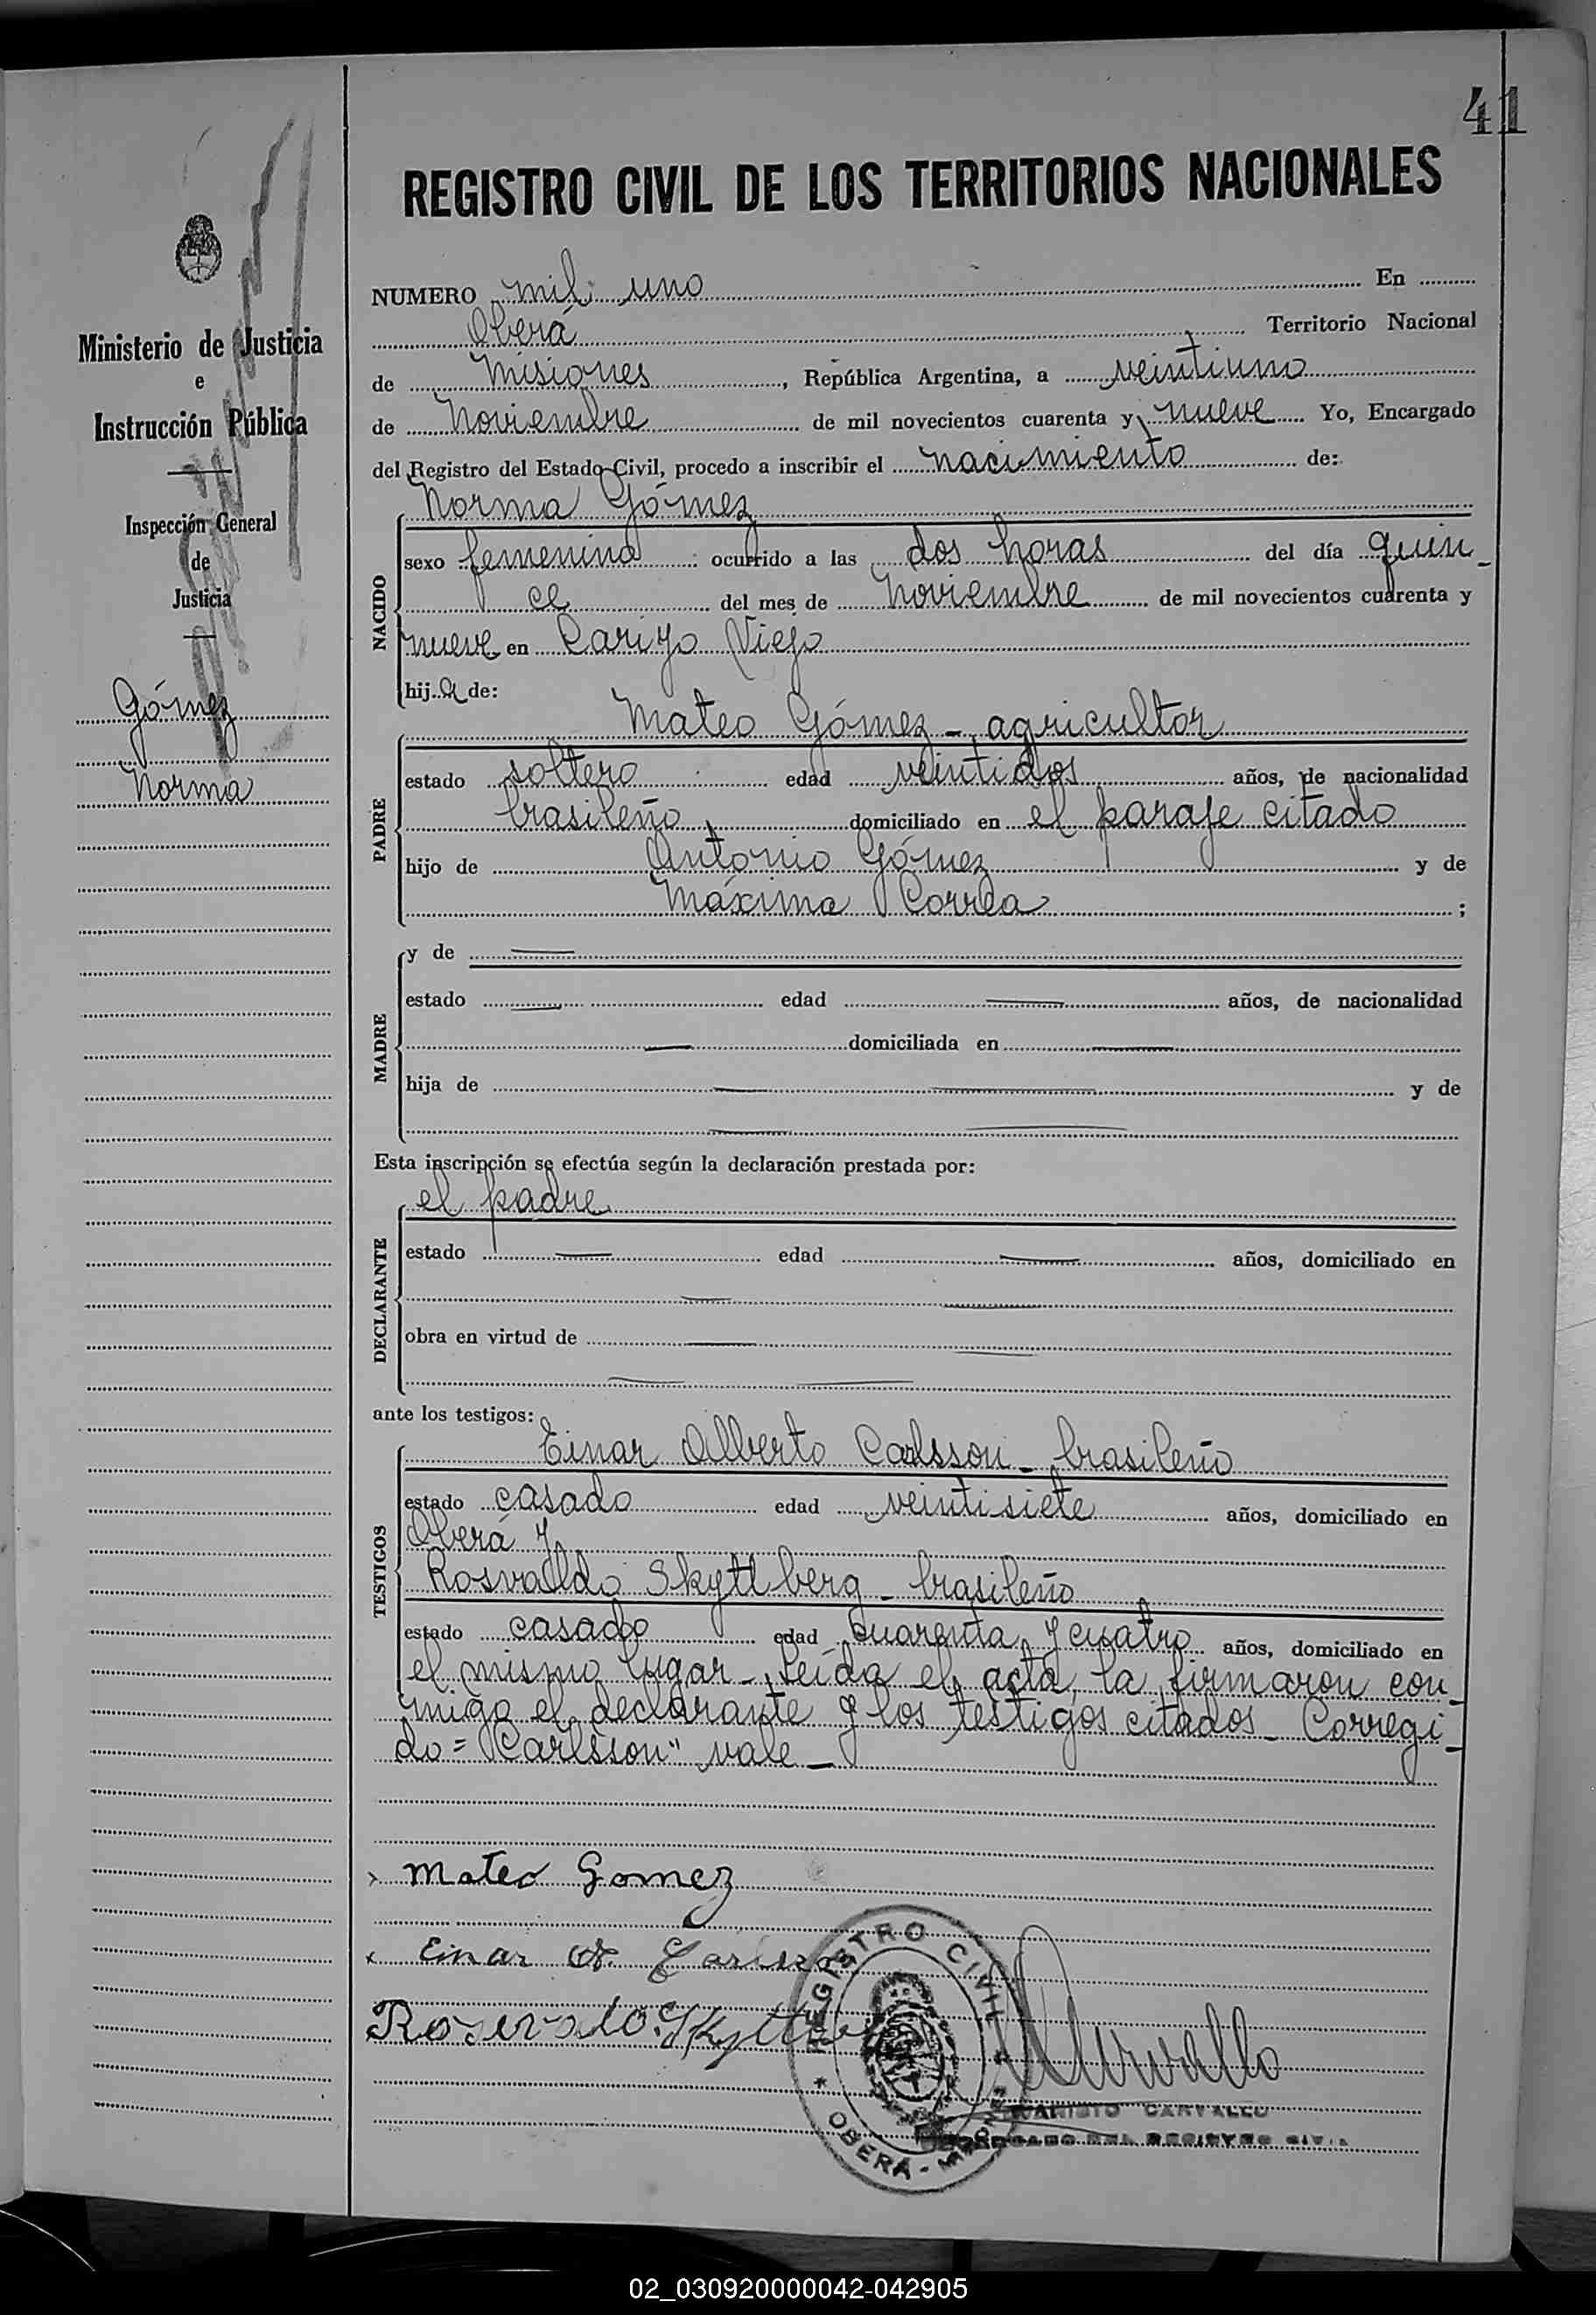 41
REGISTRO CIVIL DE LOS TERRITORIOS NACIONALES
Ministerio de Justicia
e
Instrucción Pública
Inspección General
de
Justicia
Gómez
Norma
NUMERO mil uno En
Oberá Territorio Nacional
de Misiones, República Argentina, a veintiuno
de Noviembre de mil novecientos cuarenta y nueve Yo, Encargado
del Registro del Estado Civil, procedo a inscribir el nacimiento de:
Norma Gómez
NACIDO
sexo femenino ocurrido a las dos horas del día quin-
ce del mes de Noviembre de mil novecientos cuarenta y
nueve en Cariyo Viejo
hija de:
Mateo Gómez - agricultor
PADRE
estado soltero edad veintidos años, de nacionalidad
brasileño, domiciliado en el paraje citado
hijo de Antonio Gómez y de
Máxima Correa ;
MADRE
y de —
estado — edad — años, de nacionalidad
— domiciliada en —
hija de — — y de
— —
Esta inscripción se efectúa según la declaración prestada por:
el padre
DECLARANTE
estado — edad — años, domiciliado en
— —
obra en virtud de — —
— —
ante los testigos:
Einar Alberto Carlsson - brasileño
TESTIGOS
estado casado edad veintisiete años, domiciliado en
Oberá y
Rosvaldo Skyttberg - brasileño
estado casado edad cuarenta y cuatro años, domiciliado en
el mismo lugar - Leída el acta, la firmaron con-
migo el declarante y los testigos citados - Corregi-
do = "Carlsson" vale -
Mateo Gomez
Einar A.
REGISTRO CIVIL
OBERÁ -
CARVALLO
ENCARGADO DEL REGISTRO CIVIL
02_030920000042-042905